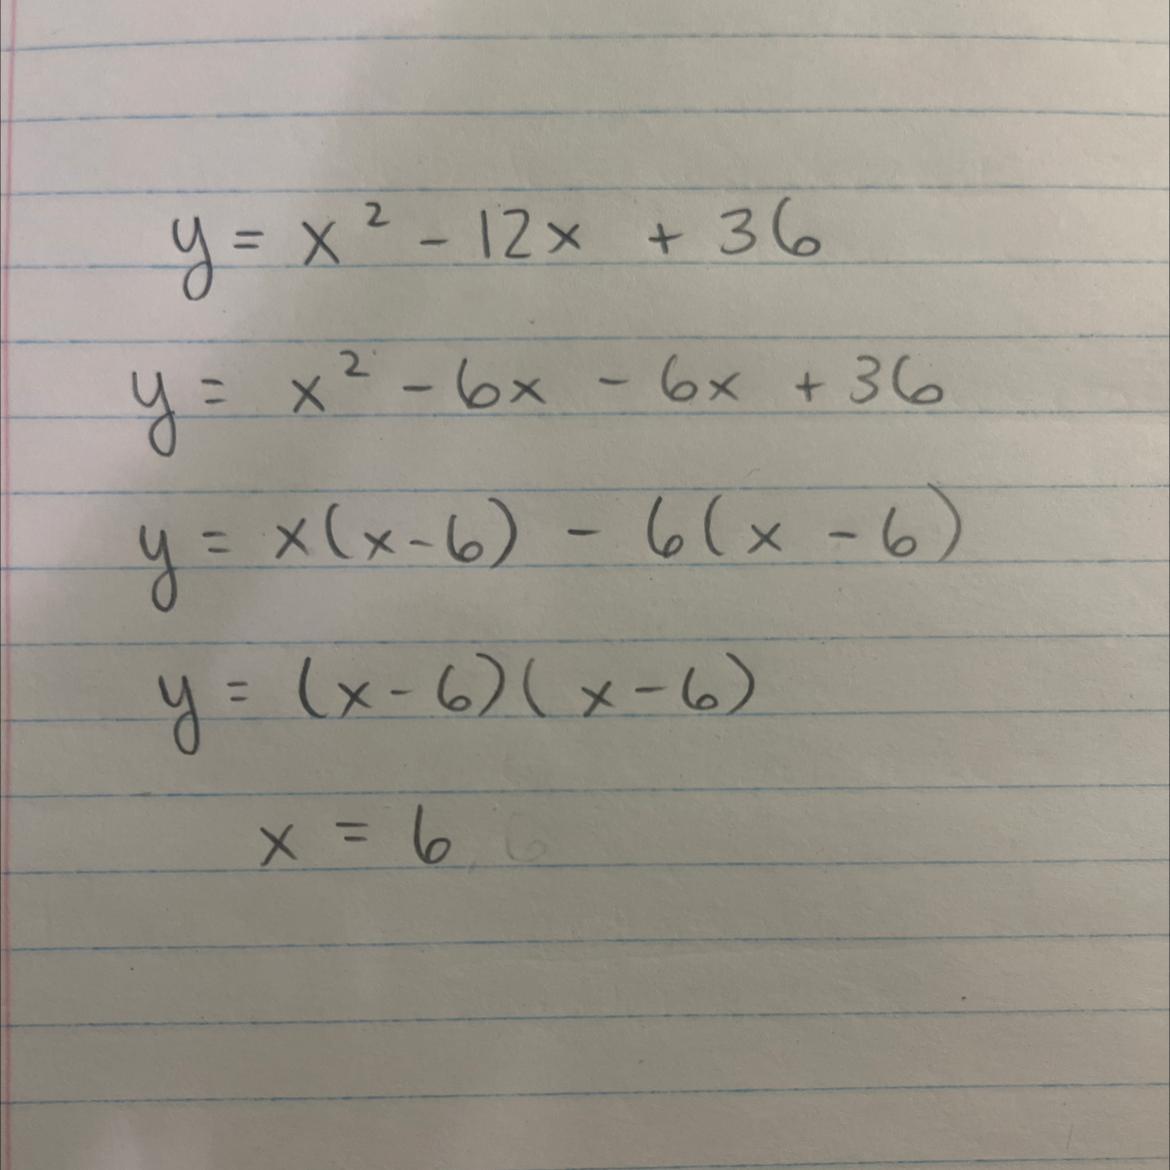 y = x² - 12x + 36
y = x² - 6x - 6x + 36
y = x(x-6) - 6(x - 6)
y = (x-6)(x-6)
x = 6